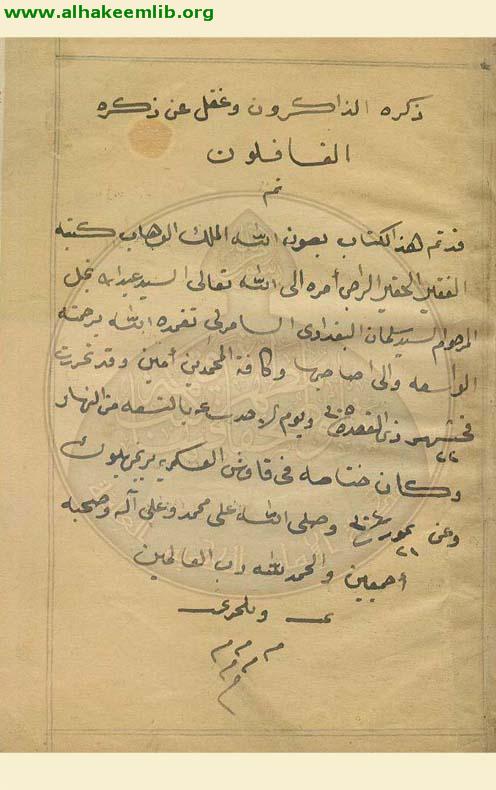 www.alhakeemlib.org
ذكره الذاكرون وغفل عن ذكره
الغافلون
تم
قد تم هذا الكتاب بعون الله الملك الوهاب كتبه
الفقير الحقير الراجي أمره الى الله تعالى السيد عبد الله نجل
المرحوم السيد سلمان البغدادي السامرلي تغمده الله برحمته
الواسعه والى اصحابها وكافة المحمدين أمين وقد تحررت
في ٢٢ شهر ذي القعده ويوم بالتسعه من النهار
وكان ختامه في قاوش العسكريه
وعن ٢١ تموز وصلى الله على محمد وعلى آله وصحبه
أجمعين والحمد لله رب العالمين
م م م
م م
م